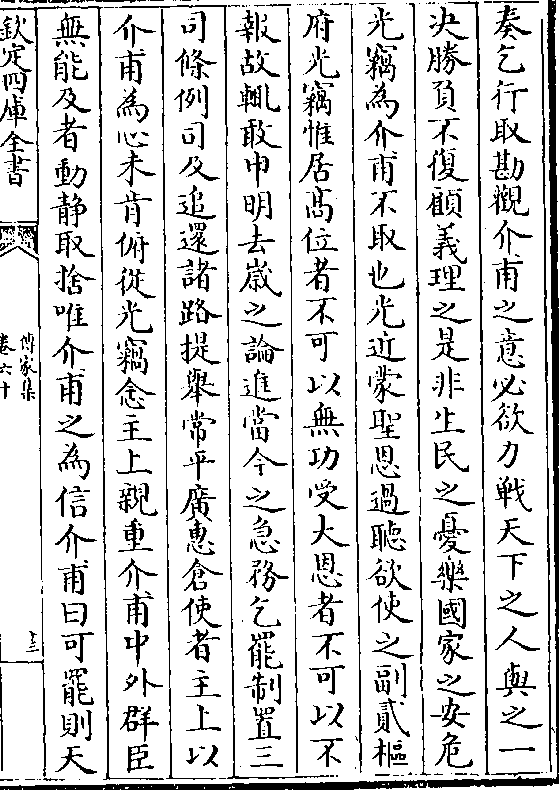 奏乞行取勘觀介甫之意必欲力戰天下之人與之一
決勝負不復顧義理之是非生民之憂樂國家之安危
光竊為介甫不取也光近蒙聖恩過聽欲使之副貳樞
府光竊惟居髙位者不可以無功受大恩者不可以不
報故輒敢申明去嵗之論進當今之急務乞罷制置三
司條例司及追還諸路提舉常平廣惠倉使者主上以
介甫為心未肯俯從光竊念主上親重介甫中外群臣
無能及者動静取捨唯介甫之為信介甫曰可罷則天
欽定四庫全書
傳家集
卷六十
十三